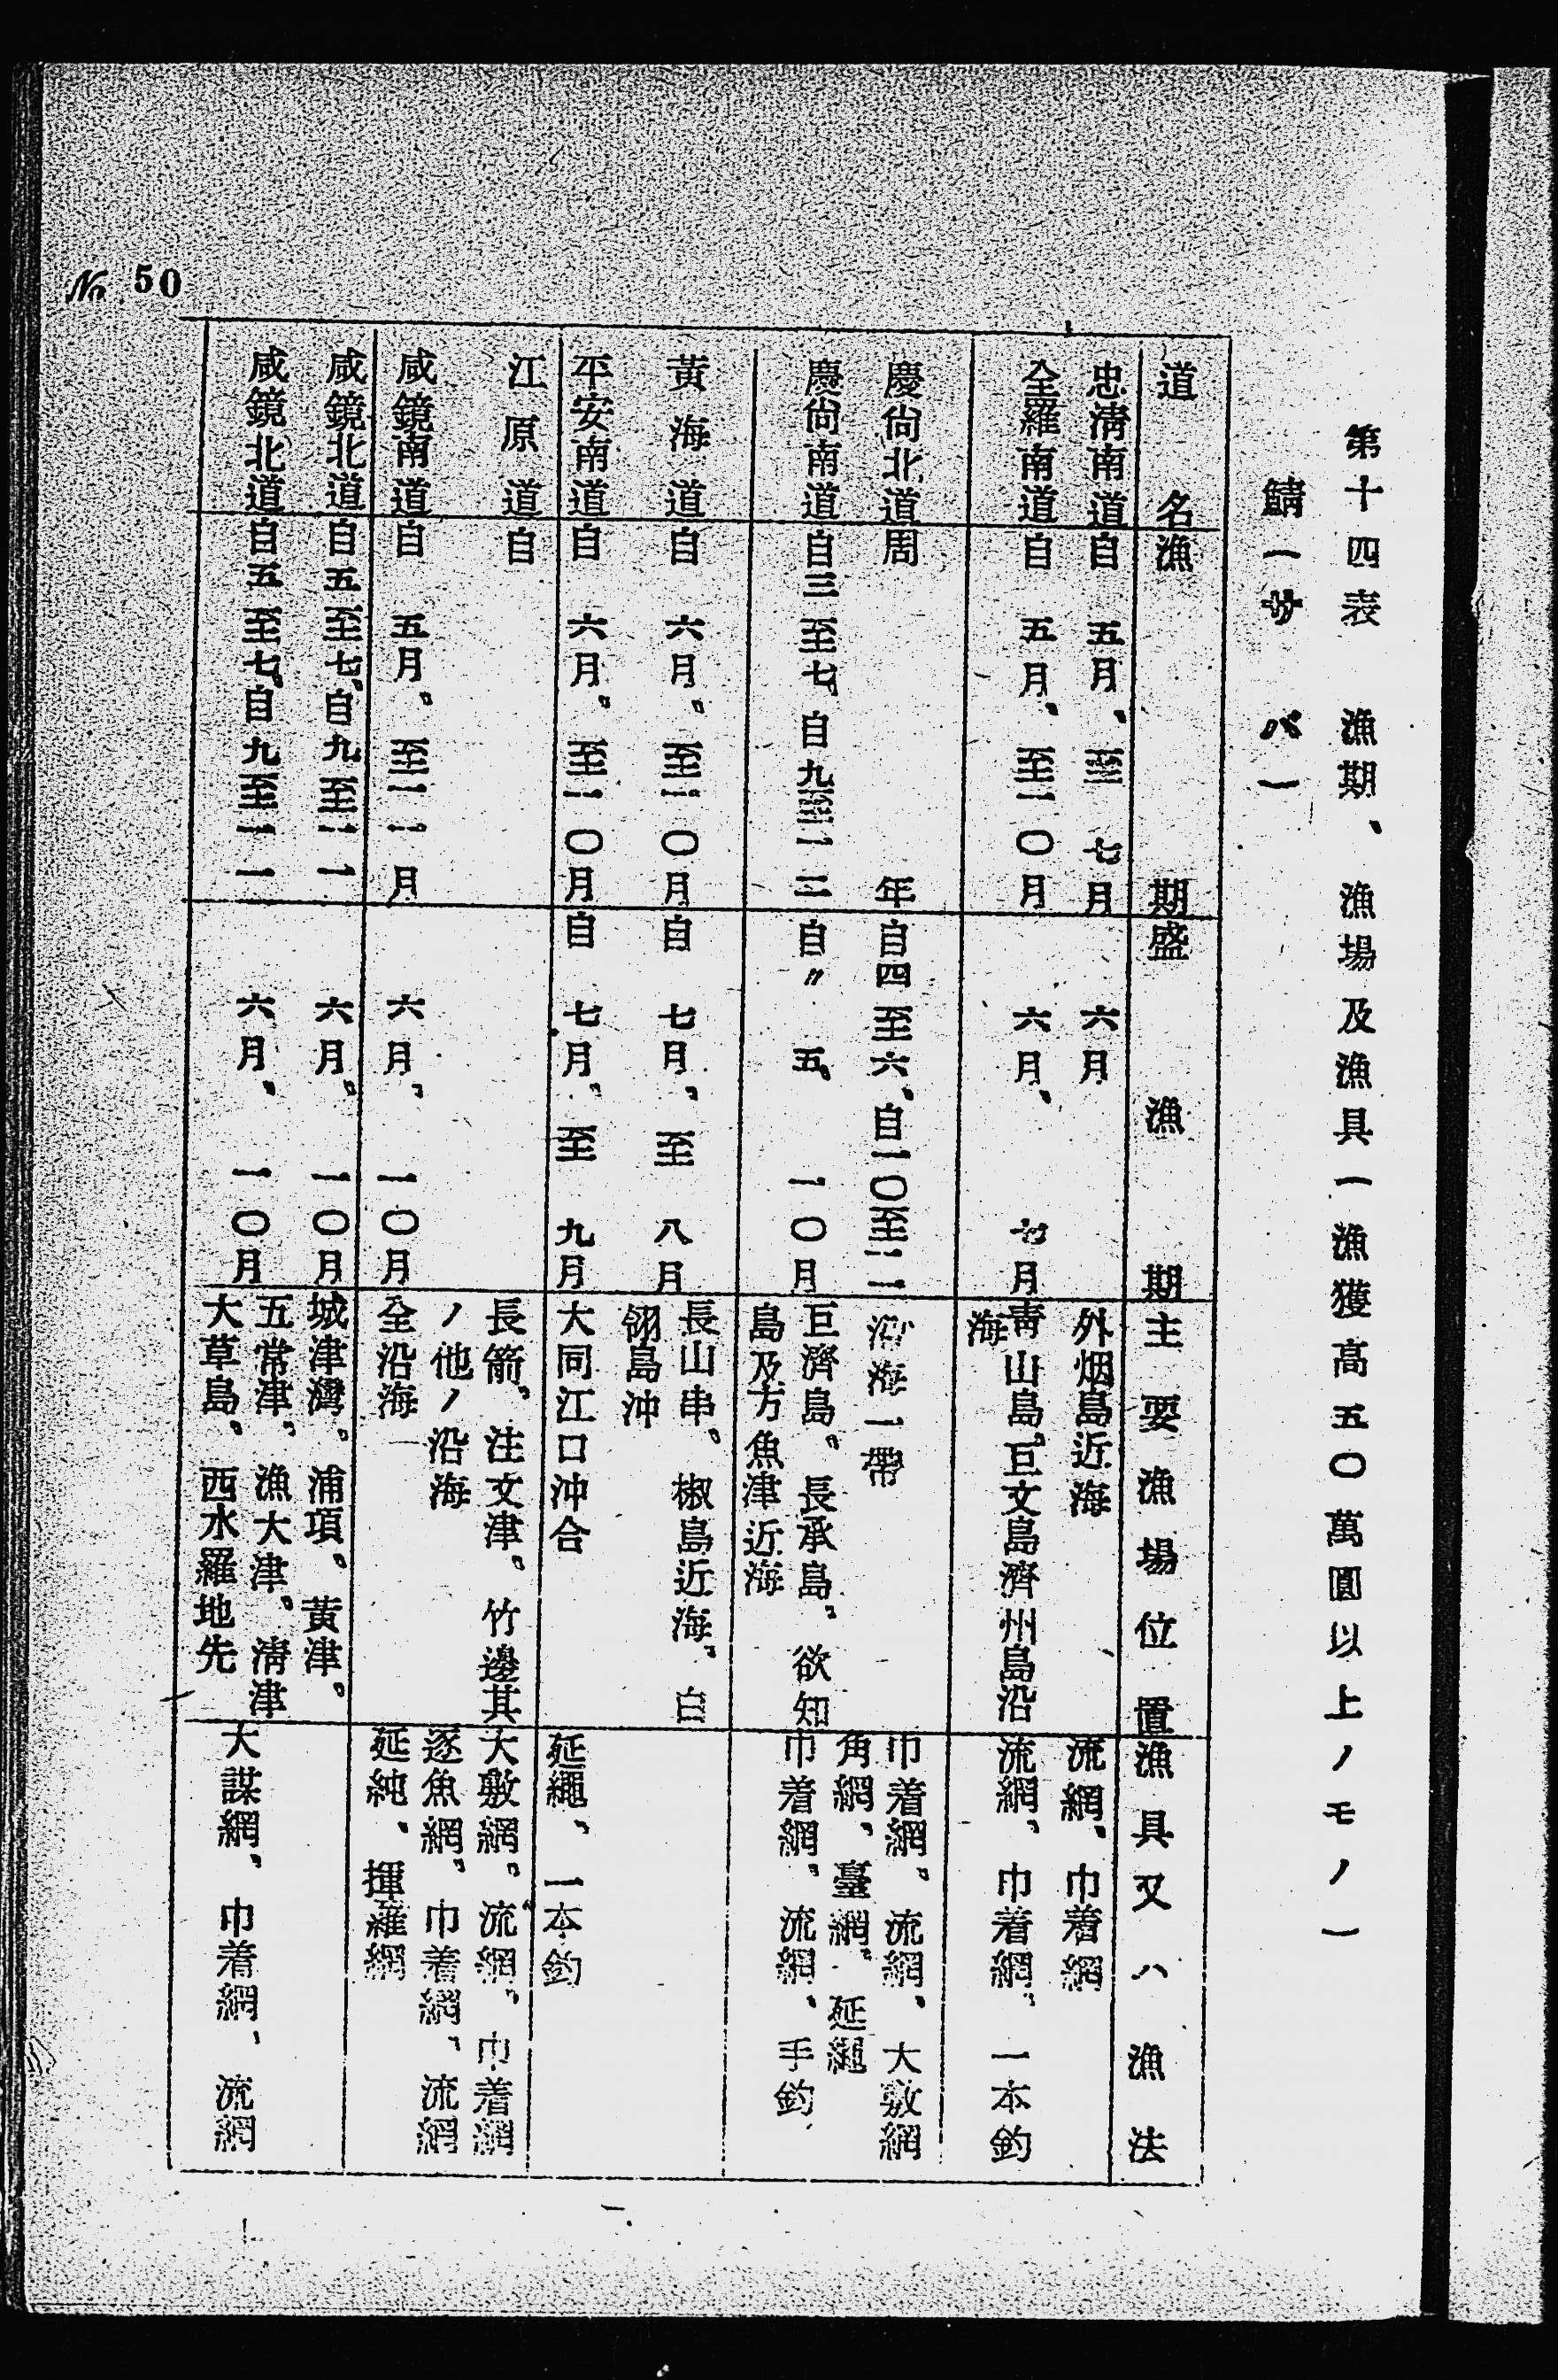 第十四表　漁期、漁場及漁具（漁獲高五〇萬圓以上ノモノ）
鯖（サバ）
道名　漁期　盛漁期　主要漁場位置　漁具又ハ漁法
忠淸南道　自五月、至七月　六月　外烟島近海　流網、巾着網
全羅南道　自五月、至一〇月　六月、七月　靑山島、巨文島濟州島沿海　流網、巾着網、一本釣
慶尙北道　周年　自四至六、自一〇至一一　沿海一帶　巾着網、流網、大敷網角網、臺網、延繩
慶尙南道　自三至七、自九至一二　自〃五、一〇月　巨濟島、長承島、欲知島及方魚津近海　巾着網、流網、手釣、
黃海道　自六月、至一〇月　自七月、至八月　長山串、椒島近海、白翎島沖
平安南道　自六月、至一〇月　自七月、至九月　大同江口沖合　延繩、一本釣
江原道　自　長箭、注文津、竹邊其ノ他ノ沿海　大敷網、流網、巾着網
咸鏡南道　自五月、至一一月　六月、一〇月　全沿海　逐魚網、巾着網、流網延純、揮羅網
咸鏡北道　自五至七、自九至一一　六月、一〇月　城津灣、浦項、黃津、
咸鏡北道　自五至七、自九至一一　六月、一〇月　五常津、漁大津、淸津大草島、西水羅地先　大謀網、巾着網、流網
№ 50